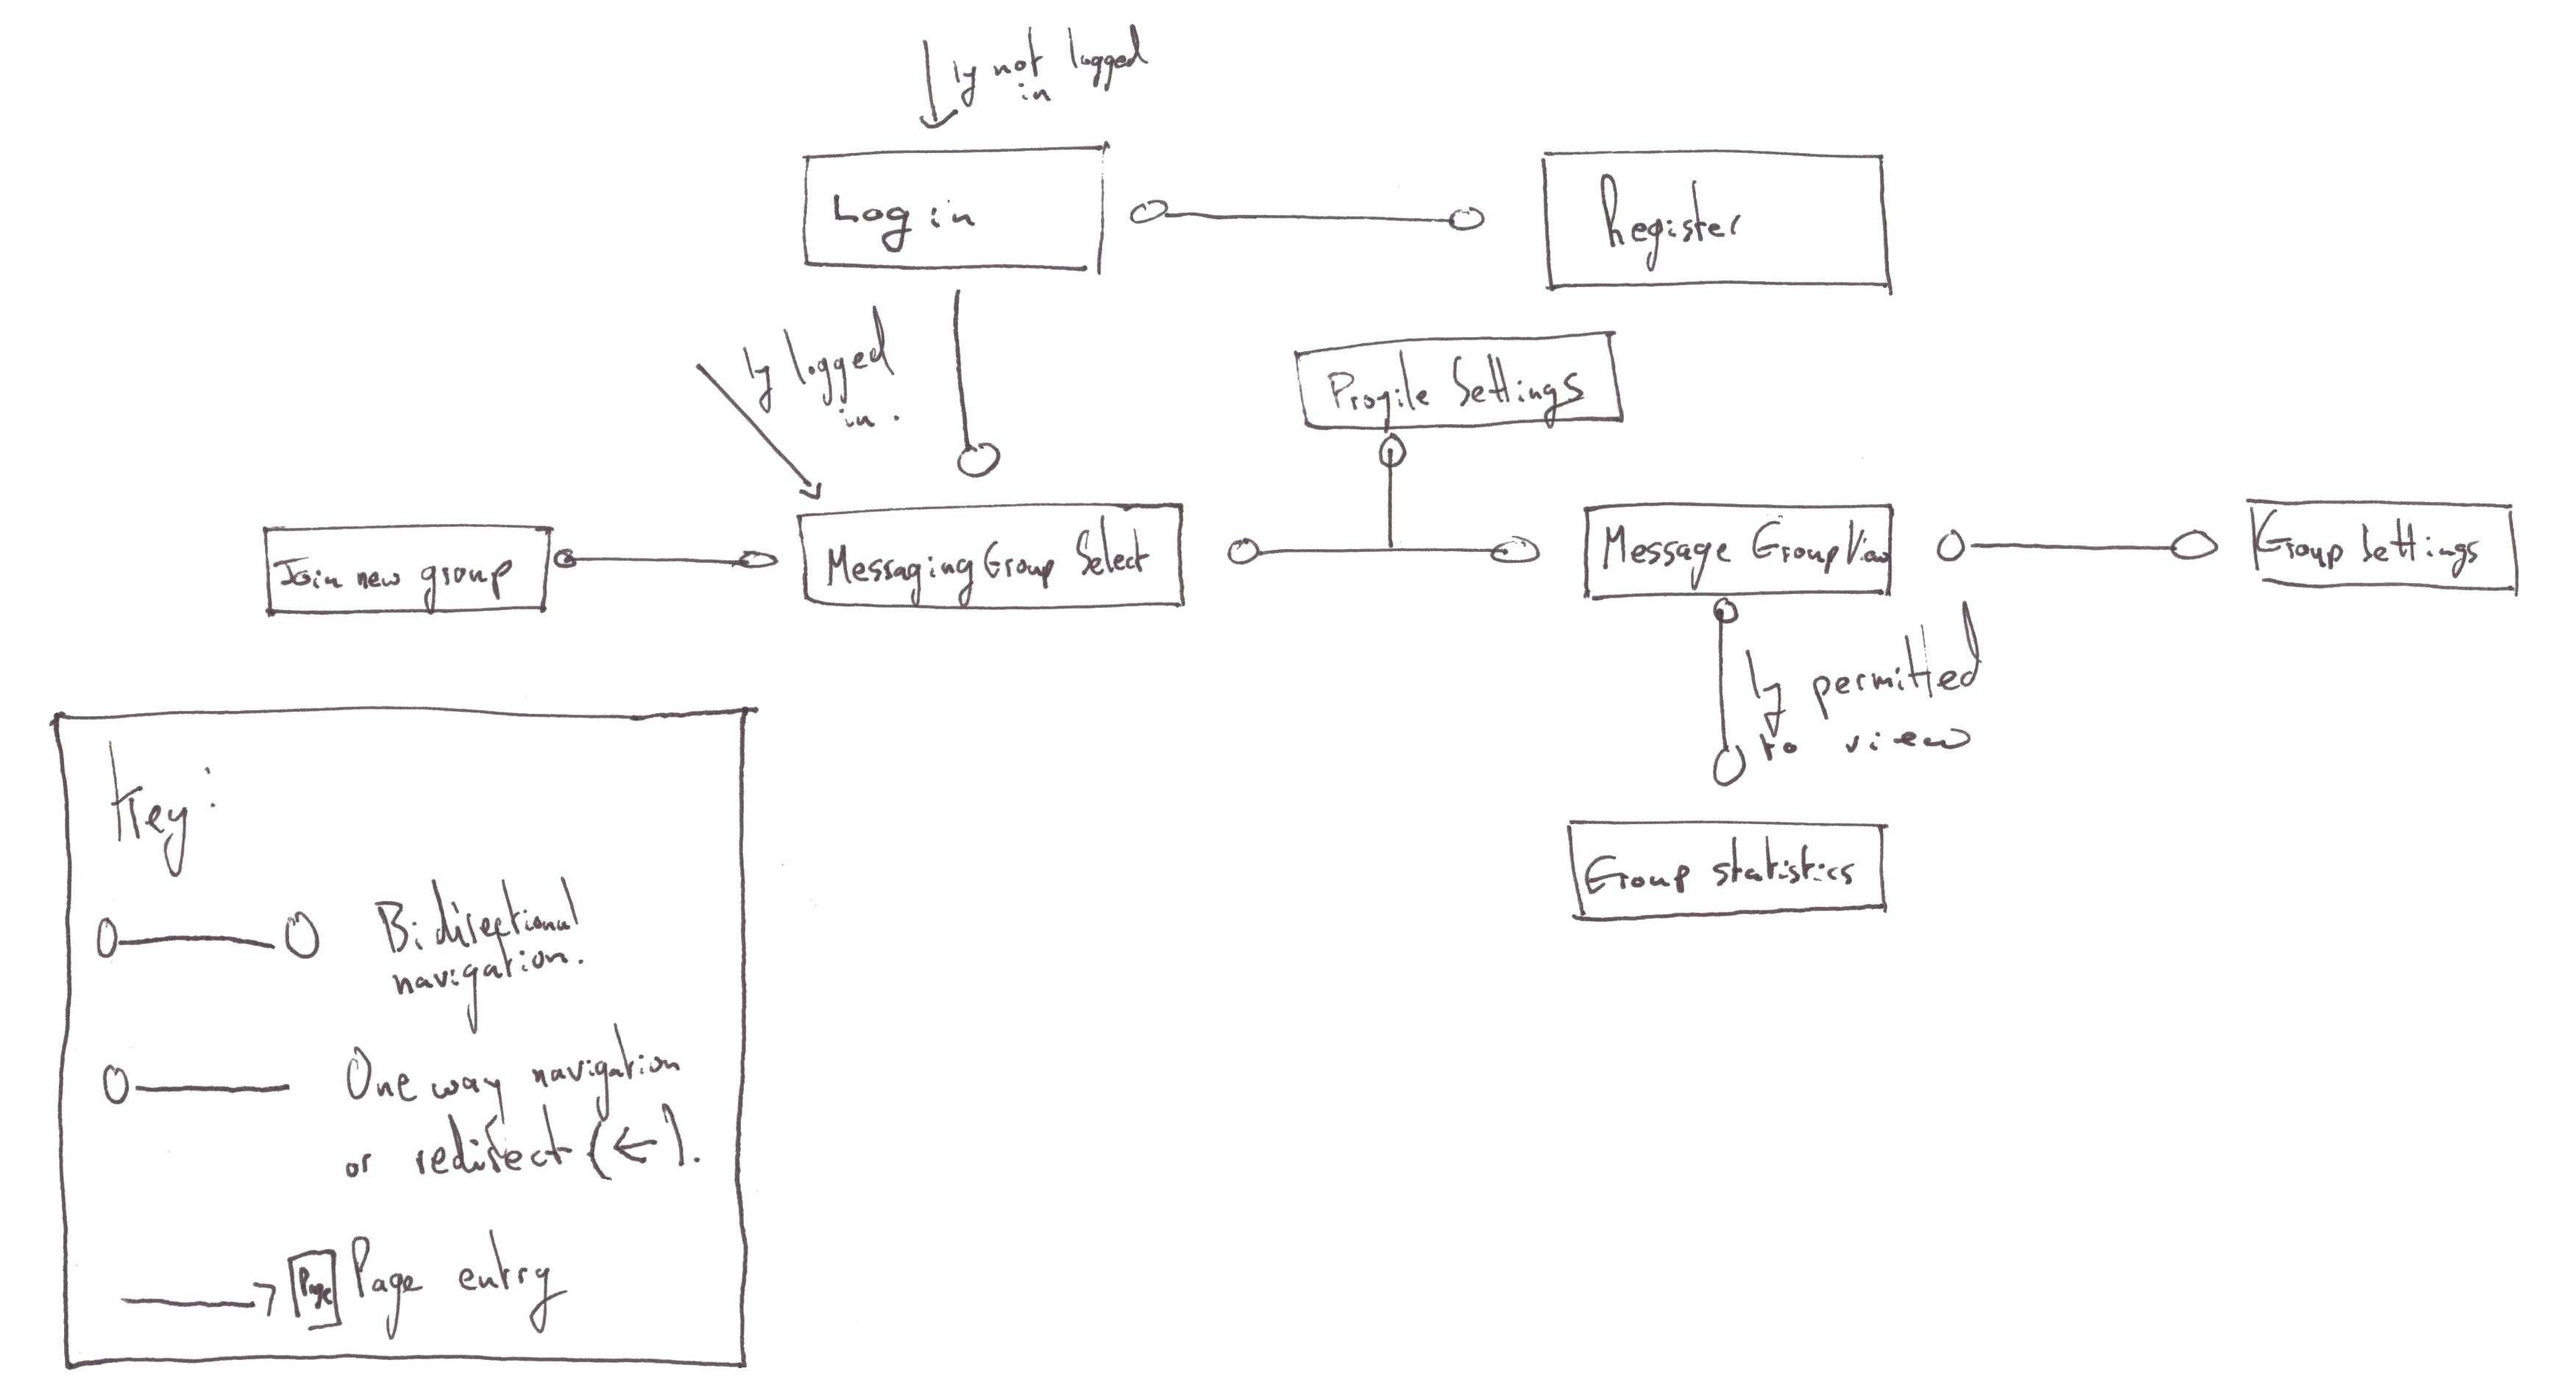 if not logged
in
Log in
Register
if logged
in.
Profile Settings
Join new group
Messaging Group Select
Message Group View
Group Settings
if permitted
to view
Group statistics
Key:
Bidirectional
navigation.
One way navigation
or redirect (←).
Page
Page entry